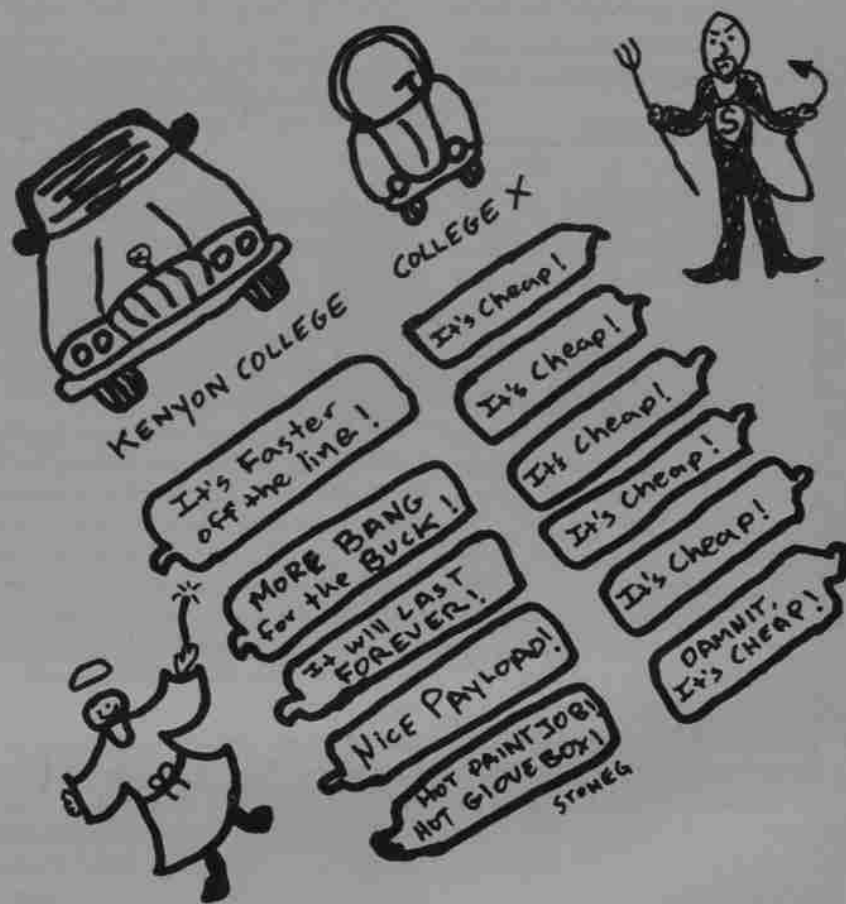 KENYON COLLEGE
COLLEGE X
S
It's Faster
off the line!
MORE BANG
for the BUCK!
It will LAST
FOREVER!
NICE PAYLOAD!
HOT PAINT JOB!
HOT GLOVEBOX!
STONEG
It's Cheap!
It's Cheap!
It's Cheap!
It's Cheap!
It's Cheap!
DAMNIT,
It's CHEAP!